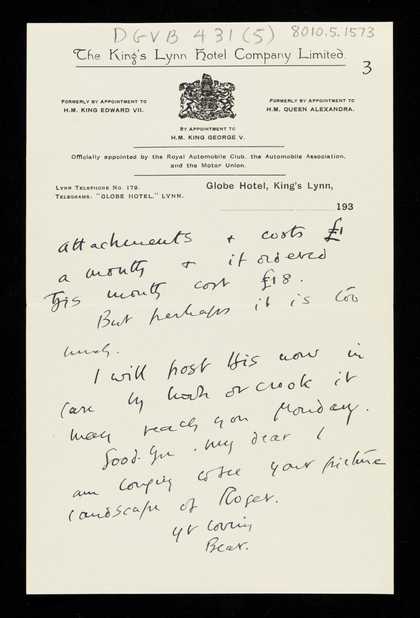 DGVB 431 (5) 8010.5.1573
The King's Lynn Hotel Company Limited.
3
Formerly by Appointment to
H.M. King Edward VII.
Formerly by Appointment to
H.M. Queen Alexandra.
By Appointment to
H.M. King George V.
Officially appointed by the Royal Automobile Club, the Automobile Association,
and the Motor Union.
Lynn Telephone No. 179.
Telegrams: "Globe Hotel," Lynn.
Globe Hotel, King's Lynn,
193
attachments & costs £1
a month & if ordered
this month cost £18.
But perhaps it is too
much.
I will post this now in
case by hook or crook it
may reach you Monday.
Good-bye my dear I
am longing to see your picture
landscape of Roger.
yr loving
Bear.